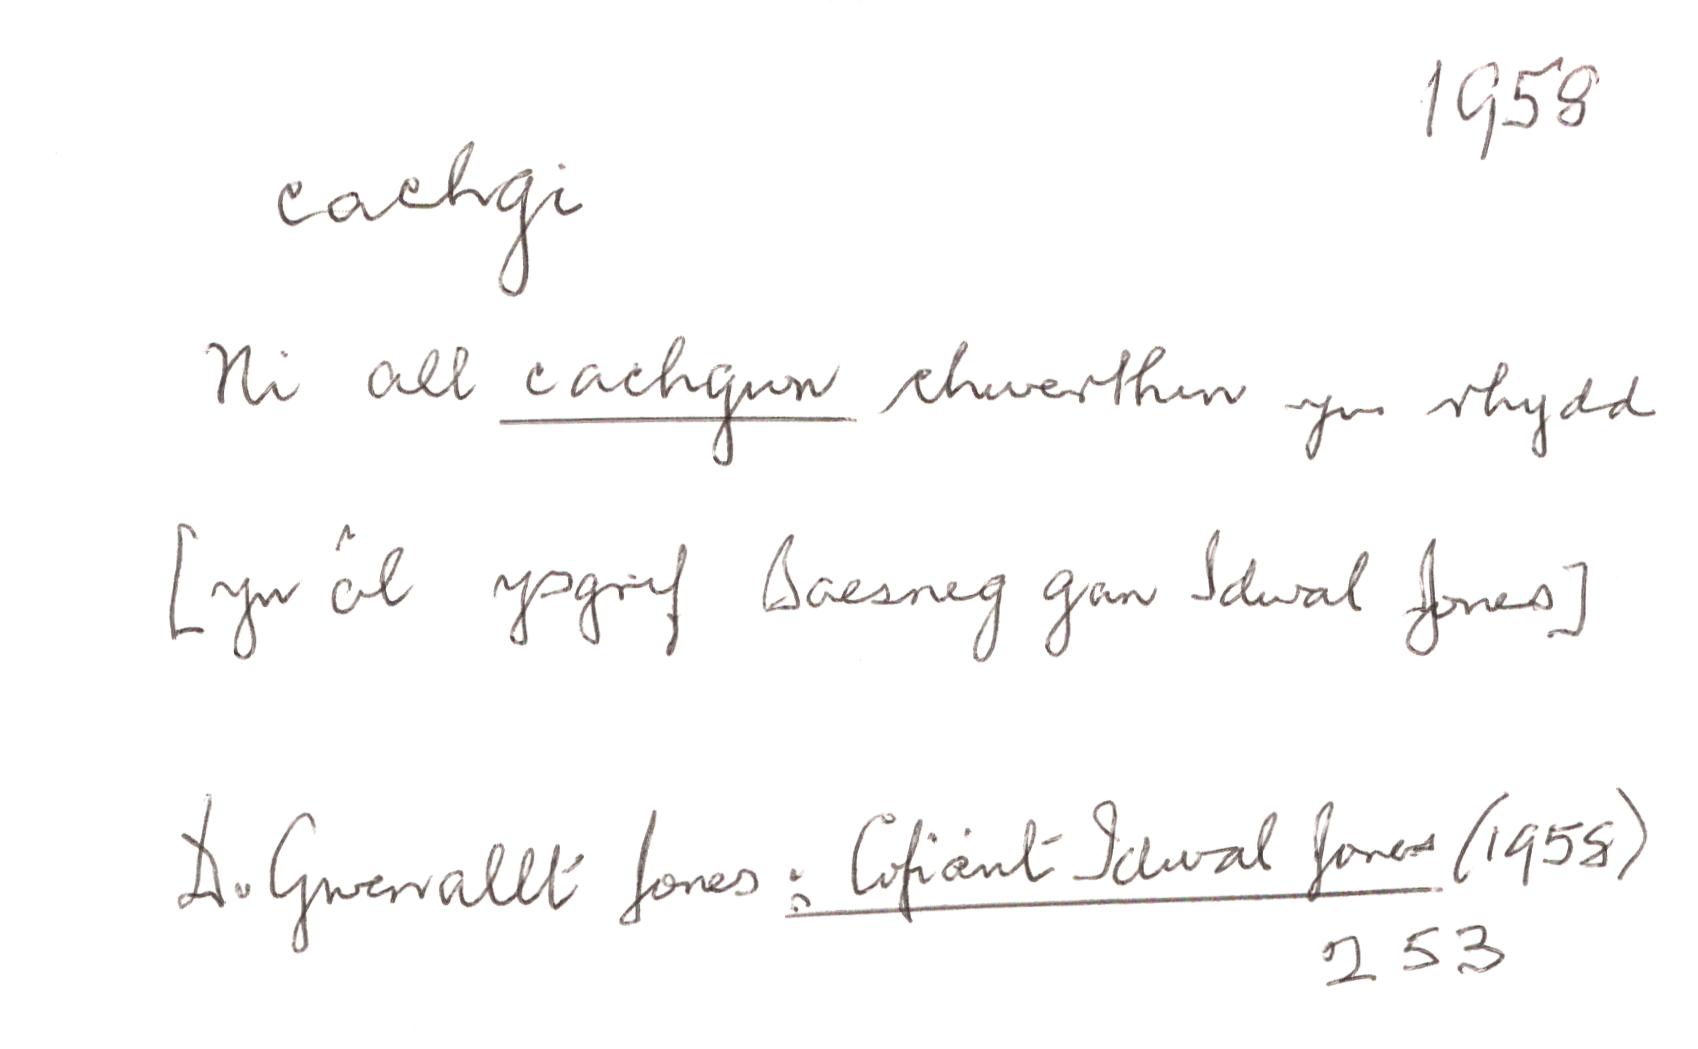 1958
cachgi
Ni all cachgwn chwerthin yn rhydd
[yn ôl ysgrif Saesneg gan Idwal Jones]
D. Gwenallt Jones : Cofiant Idwal Jones (1958)
253